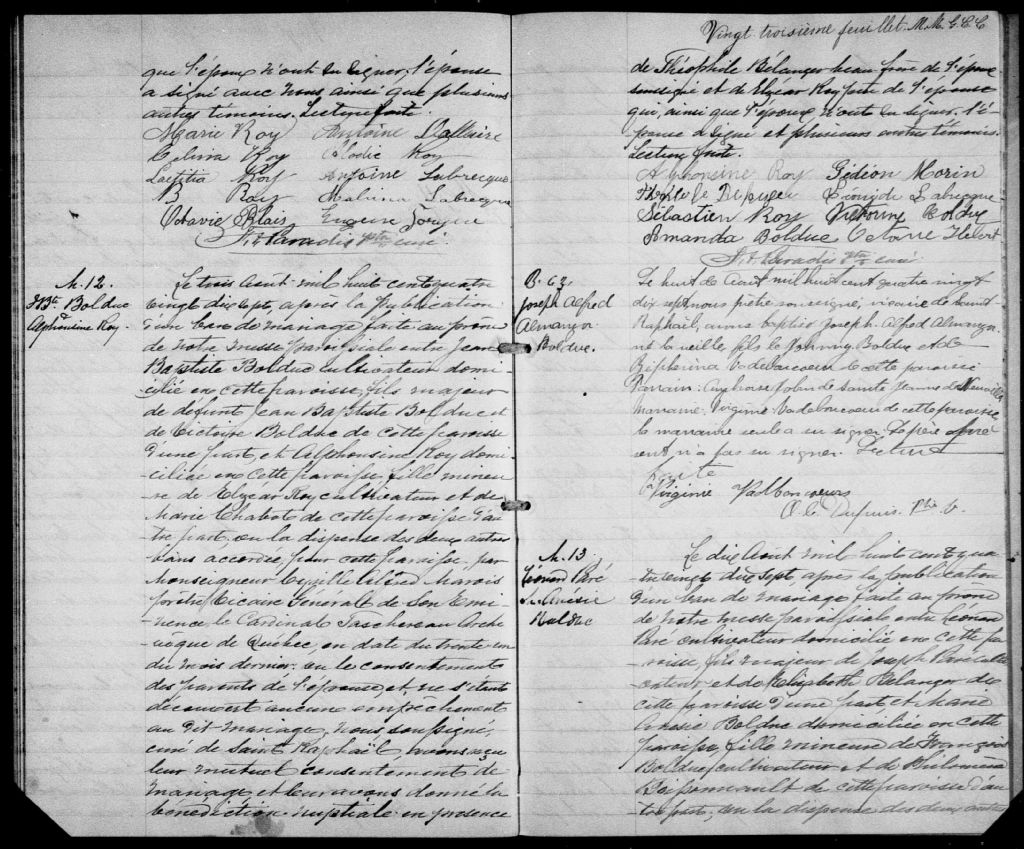 que l'époux n'ont su signer, l'épouse
a signé avec nous ainsi que plusieurs
autres témoins. Lecture faite.
Marie Roy Antoine Dallaire
Celina Roy Elodie Roy
Laetitia Roy Antoine Labrecque
B Roy Malvina Labrecque
Octavie Blais Eugène
J. A. Paradis Ptre curé
M. 12.
J. Bte Bolduc
&
Alphonsine Roy.
Le trois Août mil huit cent quatre
vingt dix sept, après la publication
d'un ban de mariage faite au prône
de notre messe paroissiale entre Jean
Baptiste Bolduc cultivateur domi-
cilié en cette paroisse, fils majeur
de défunt Jean Baptiste Bolduc et
de Victoire Bolduc de cette paroisse
d'une part, et Alphonsine Roy domi-
ciliée en cette paroisse, fille mineu-
re de Elzéar Roy cultivateur et de
Marie Chabot de cette paroisse d'au-
tre part, vu la dispense des deux autres
bans accordée, pour cette paroisse, par
Monseigneur Cyrille Alfred Marois
prêtre, Vicaire Général de Son Emi-
nence, le Cardinal Taschereau Arche-
vêque de Québec, en date du trente un
du mois dernier, vu le consentement
des parents de l'épouse et ne s'étant
découvert aucun empêchement
au dit mariage, nous soussigné,
curé de Saint Raphaël, avons reçu
leur mutuel consentement de
mariage et leur avons donné la
bénédiction nuptiale en présence
Vingt troisième feuillet. M. M. G. C. C
de Théophile Bélanger beau frère de l'époux
soussigné et de Elzear Roy père de l'épouse
qui, ainsi que l'époux n'ont su signer. L'é-
pouse a signé et plusieurs autres témoins.
Lecture faite.
Alphonsine Roy Gédéon Morin
Théofile Labrecque
Sébastien Roy Bolduc
Amanda Bolduc Octave Hebert
J. A. Paradis Ptre curé
B. 63.
Joseph Alfred
Almanzor
Bolduc.
Le huit de Août mil huit cent quatre vingt
dix sept nous prêtre soussigné, vicaire de Saint
Raphaël, avons baptisé Joseph Alfred Almanzor
né la veille fils de Johnny Bolduc et de
Vadeboncoeur de cette paroisse
Parrain: Robin de Sainte Jeanne de Neuville
marraine: Virginie Vadeboncoeur de cette paroisse
la marraine seule a su signer. Le père
n'a pas su signer. Lecture
faite
Virginie Vadboncoeurs
O. C. Dupuis. Ptre V.
M. 13
Léonard Paré
&
M. Anésie
Bolduc
Le dix Août mil huit cent qua-
tre vingt dix sept, après la publication
d'un ban de mariage faite au prône
de notre messe paroissiale entre Léonard
Paré cultivateur domicilié en cette pa-
roisse, fils majeur de Joseph Paré culti-
vateur et de Elizabeth Bélanger de
cette paroisse d'une part et Marie
Anésie Bolduc domiciliée en cette
paroisse, fille mineure de François
Bolduc cultivateur et de Philomène
Boissonnault de cette paroisse d'au-
tre part, vu la dispense des deux autres